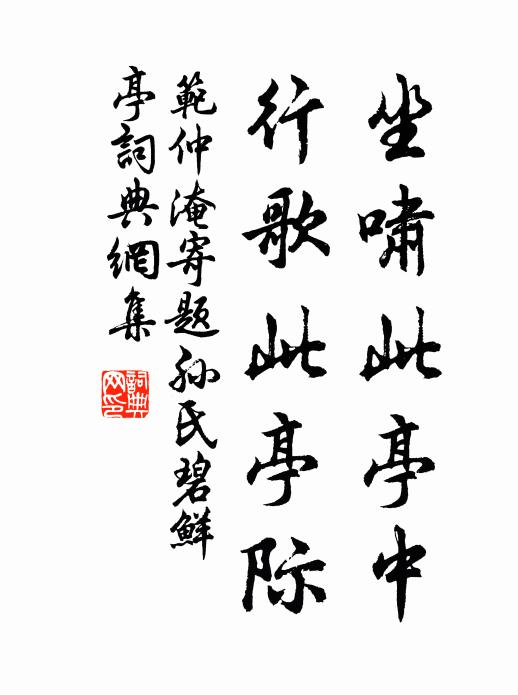 坐嘯此亭中
行歌此亭际
範仲淹寄题孙氏碧鮮
亭詞典網集
詞典网印